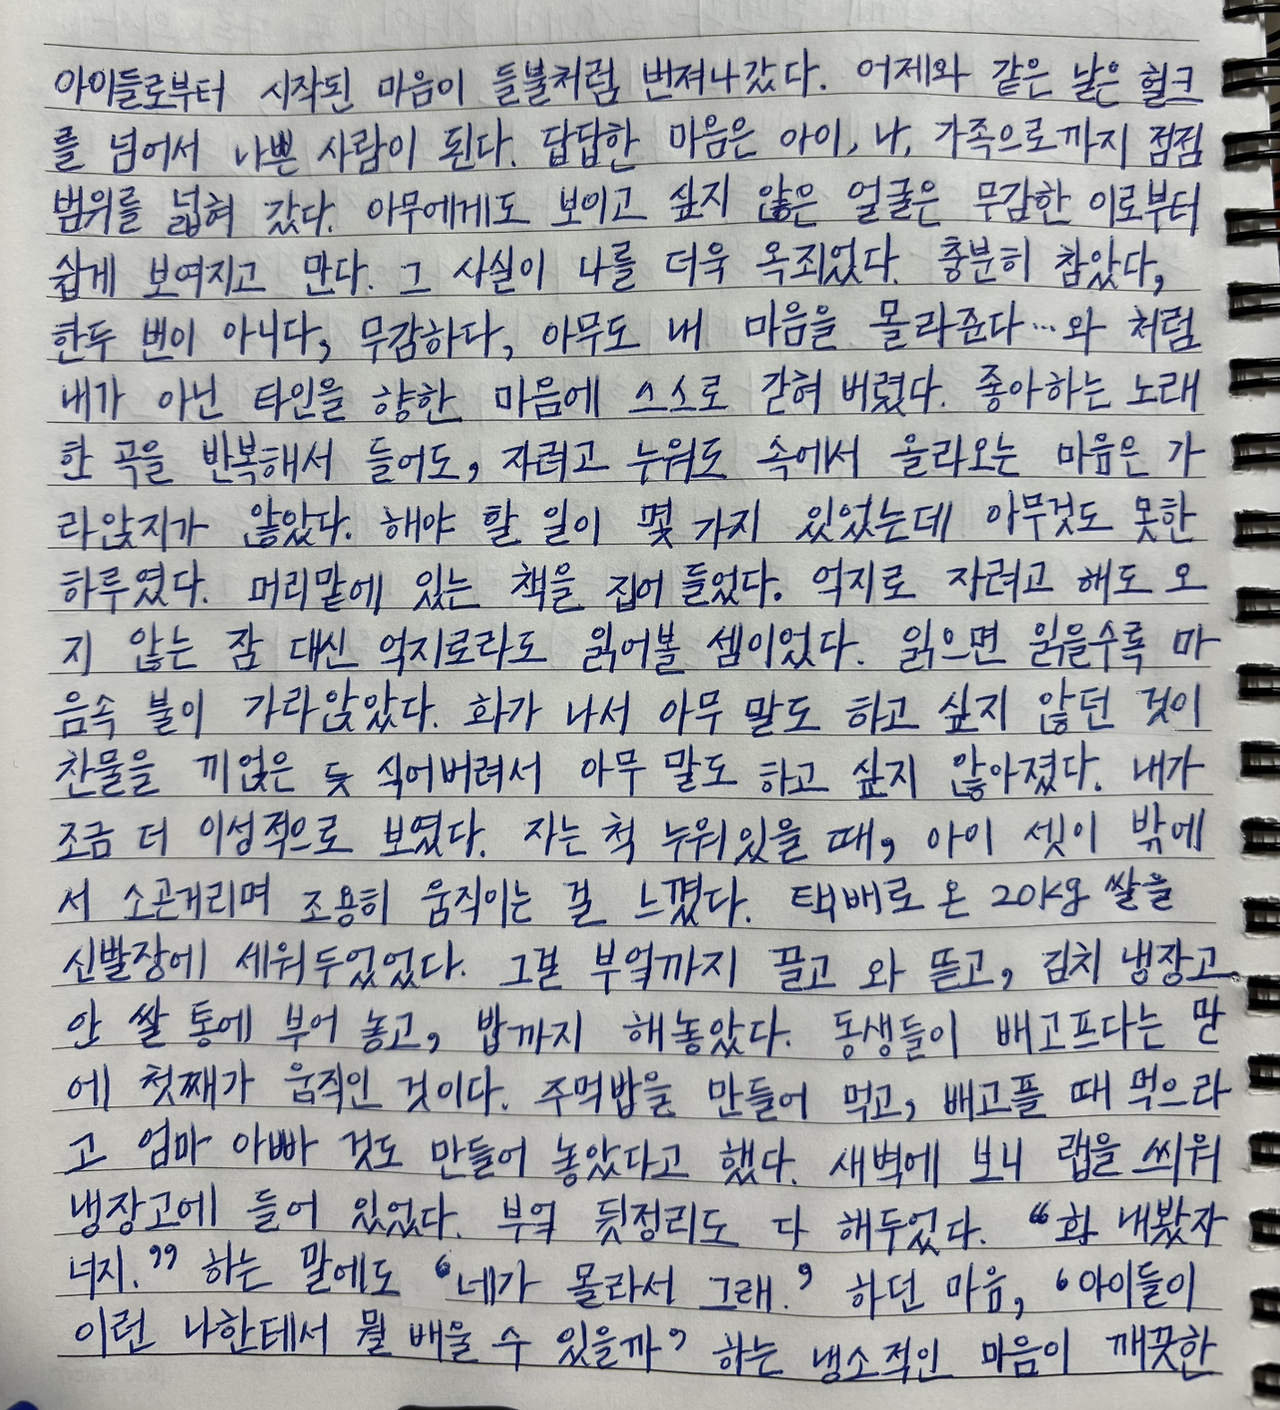 아이들로부터 시작된 마음이 들불처럼 번져나갔다. 어제와 같은 날은 헐크
를 넘어서 나쁜 사람이 된다. 답답한 마음은 아이, 나, 가족으로까지 점점
범위를 넓혀 갔다. 아무에게도 보이고 싶지 않은 얼굴은 무감한 이로부터
쉽게 보여지고 만다. 그 사실이 나를 더욱 옥죄었다. 충분히 참았다,
한두 번이 아니다, 무감하다, 아무도 내 마음을 몰라준다…와 처럼
내가 아닌 타인을 향한 마음에 스스로 갇혀 버렸다. 좋아하는 노래
한 곡을 반복해서 들어도, 자려고 누워도 속에서 올라오는 마음은 가
라앉지가 않았다. 해야 할 일이 몇 가지 있었는데 아무것도 못한
하루였다. 머리맡에 있는 책을 집어 들었다. 억지로 자려고 해도 오
지 않는 잠 대신 억지로라도 읽어볼 셈이었다. 읽으면 읽을수록 마
음속 불이 가라앉았다. 화가 나서 아무 말도 하고 싶지 않던 것이
찬물을 끼얹은 듯 식어버려서 아무 말도 하고 싶지 않아졌다. 내가
조금 더 이성적으로 보였다. 자는 척 누워있을 때, 아이 셋이 밖에
서 소곤거리며 조용히 움직이는 걸 느꼈다. 택배로 온 20kg 쌀을
신발장에 세워두었었다. 그걸 부엌까지 끌고 와 뜯고, 김치 냉장고
안 쌀 통에 부어 놓고, 밥까지 해놓았다. 동생들이 배고프다는 말
에 첫째가 움직인 것이다. 주먹밥을 만들어 먹고, 배고플 때 먹으라
고 엄마 아빠 것도 만들어 놓았다고 했다. 새벽에 보니 랩을 씌워
냉장고에 들어 있었다. 부엌 뒷정리도 다 해두었다. “화 내봤자
너지.” 하는 말에도 ‘네가 몰라서 그래.’ 하던 마음, ‘아이들이
이런 나한테서 뭘 배울 수 있을까’ 하는 냉소적인 마음이 깨끗한